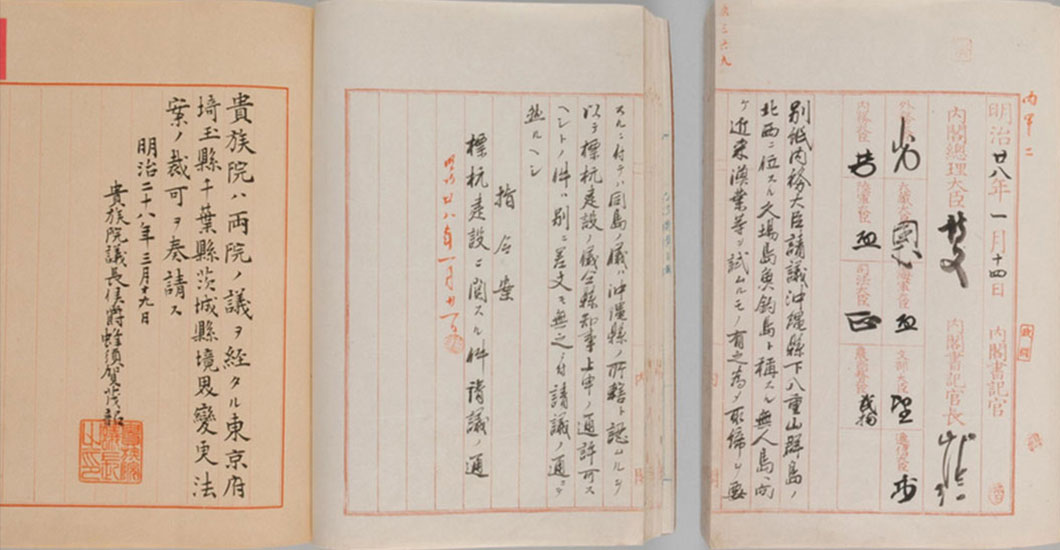 明治廿八年一月十四日
内閣書記官
内閣總理大臣
内閣書記官長
外務大臣
大藏大臣
海軍大臣
文部大臣
遞信大臣
内務大臣
陸軍大臣
司法大臣
農商務大臣
別紙内務大臣請議沖縄縣下八重山群島ノ
北西ニ位スル久場島魚釣島ト称スル無人島ヘ向
ケ近来漁業等ヲ試ムルモノ有之為メ取締ヲ要
スルニ付テハ同島ノ儀ハ沖縄縣ノ所轄ト認ムルヲ
以テ標杭建設ノ儀仝縣知事上申ノ通許可ス
ヘシトノ件ハ別ニ差支モ無之ニ付請議ノ通ニテ
然ルヘシ
指令案
標杭建設ニ関スル件請議ノ通
明治廿八年一月廿一日
貴族院ハ両院ノ議ヲ経タル東京府
埼玉縣千葉縣茨城縣境界變更法
案ノ裁可ヲ奏請ス
明治二十八年三月十九日
貴族院議長侯爵蜂須賀茂韶
貴族院議長之印